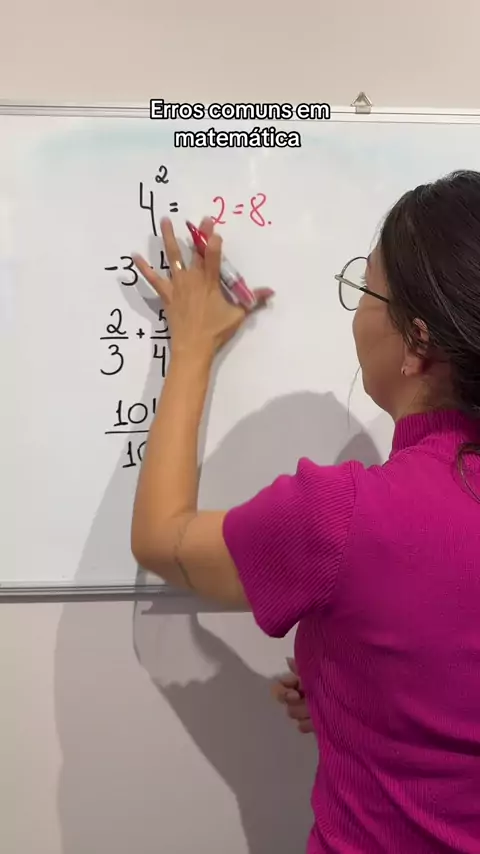 Erros comuns em
matemática
4² = 2 = 8.
-3 -
2/3 + 5/4
10
10